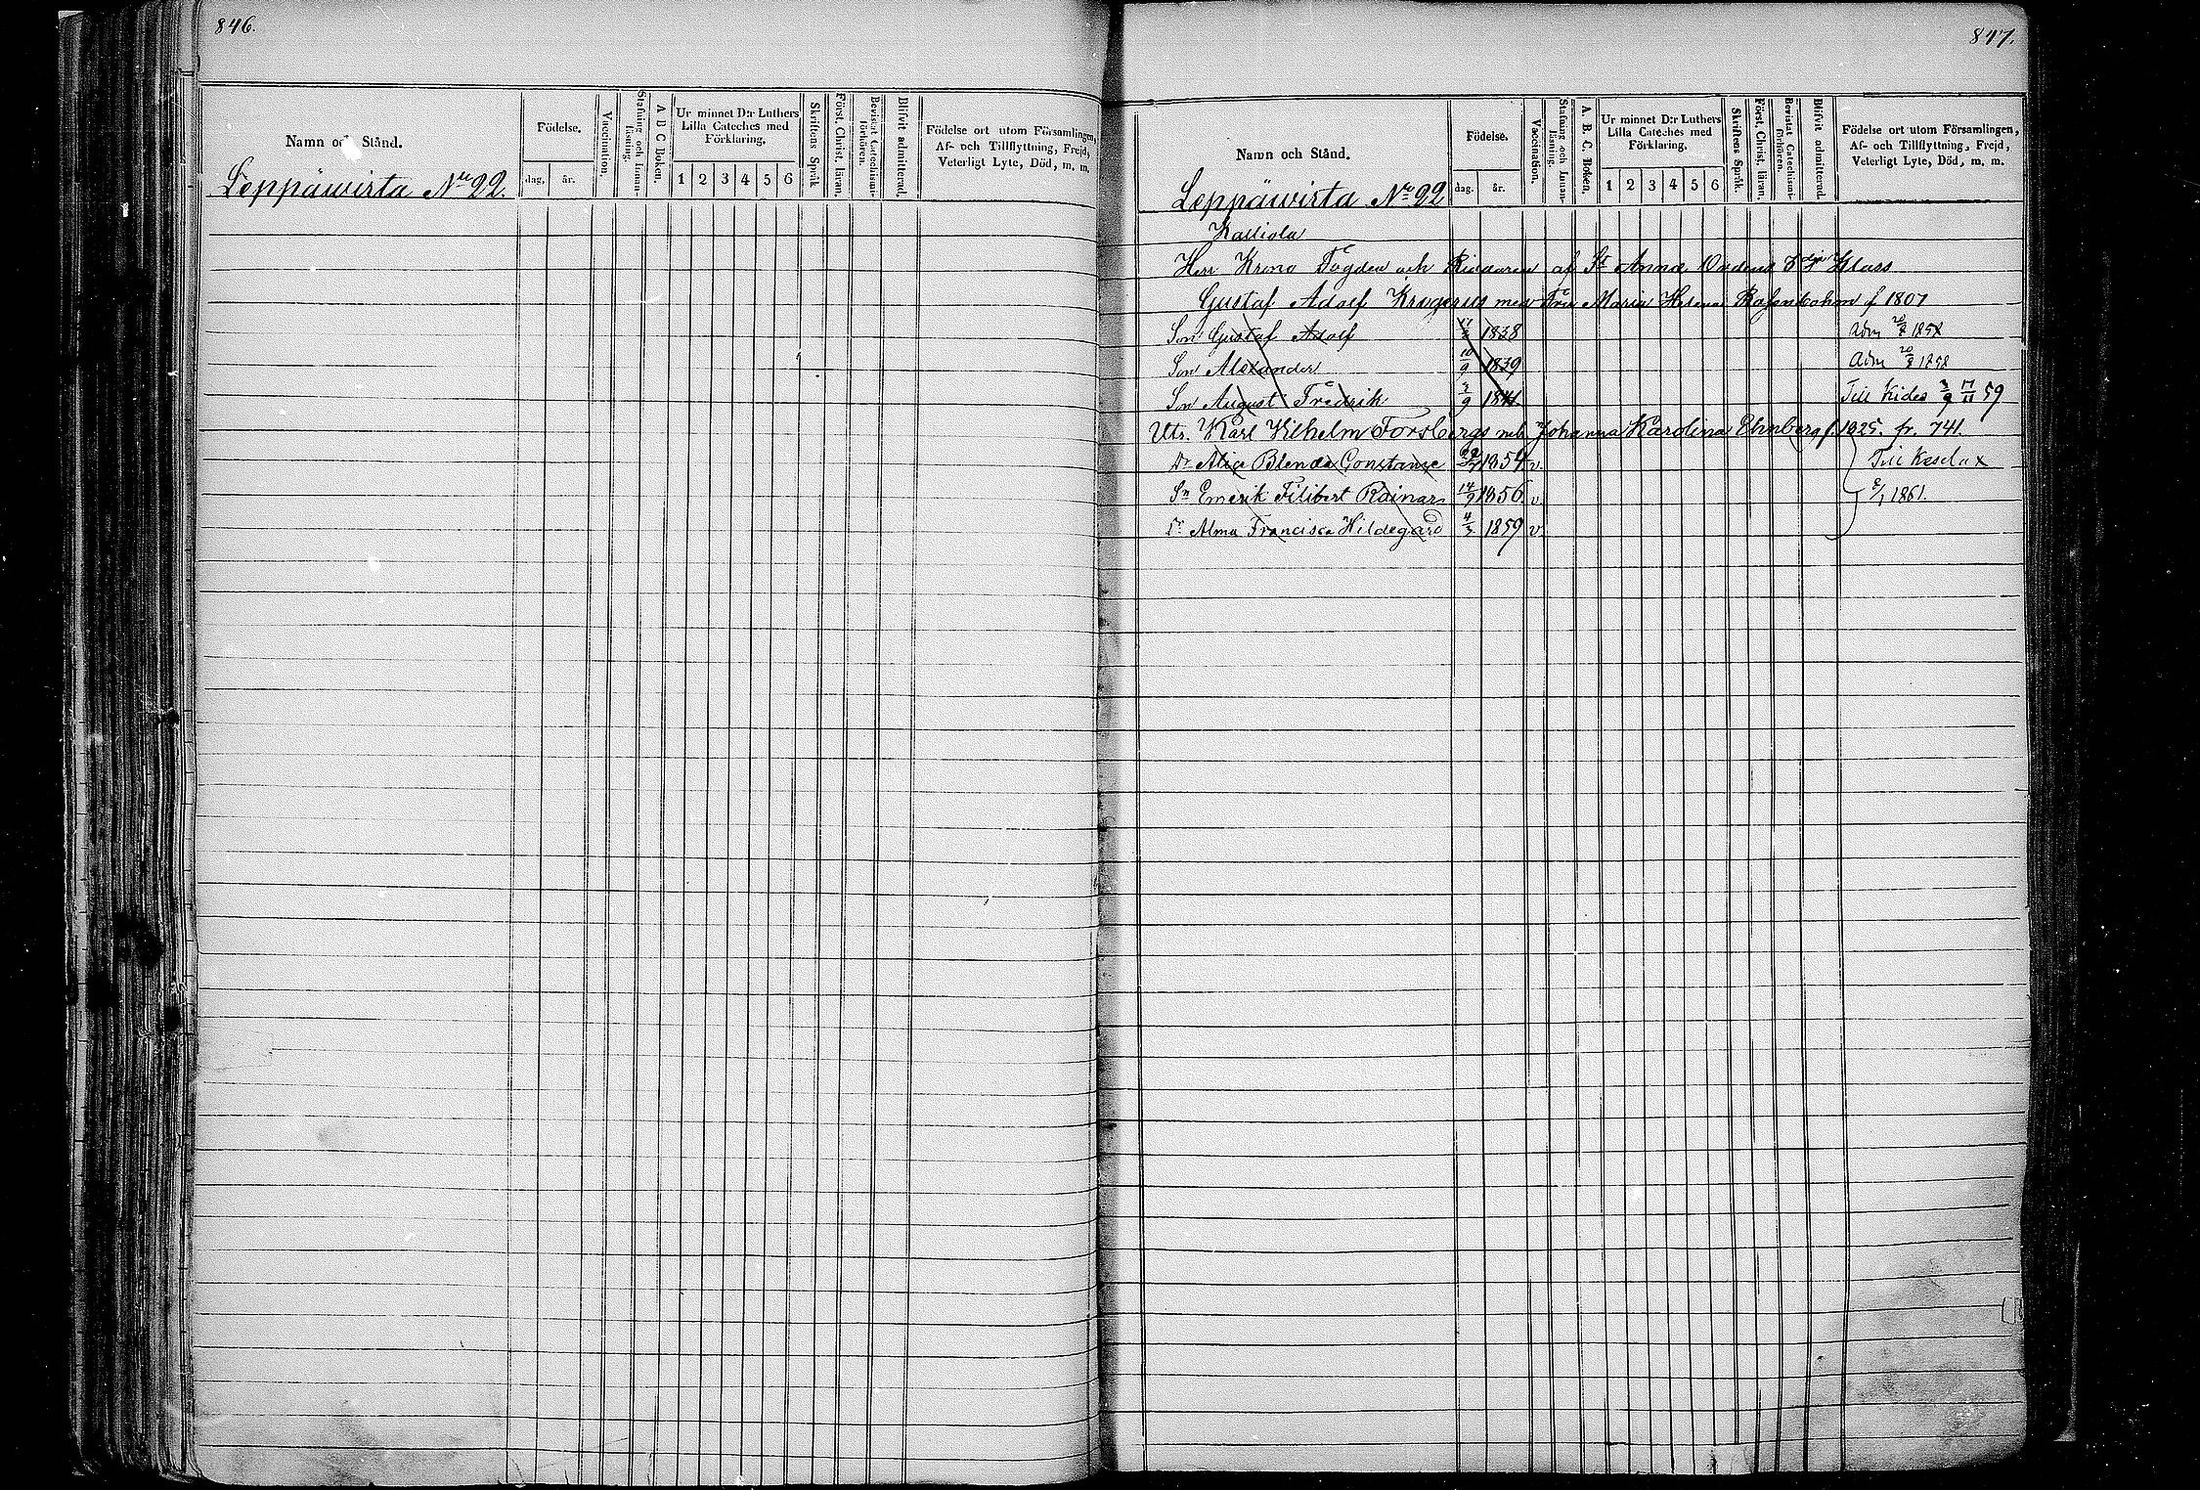 846.
Namn och Stånd.
Födelse.
dag.
år.
Vaccination.
Stafning och Innan-läsning.
A B C Boken.
Ur minnet D:r Luthers
Lilla Cateches med
Förklaring.
1 2 3 4 5 6
Skriftens Språk
Först. Christ. läran.
Bevistat Catechismi-förhören.
Blifvit admitterad.
Födelse ort utom Församlingen,
Af- och Tillflyttning, Frejd,
Veterligt Lyte, Död, m. m.
Leppäwirta No 22.
847.
Namn och Stånd.
Födelse.
dag.
år.
Vaccination.
Stafning och Innan-läsning.
A. B. C. Boken.
Ur minnet D:r Luthers
Lilla Cateches med
Förklaring.
1 2 3 4 5 6
Skriftens Språk.
Först. Christ. läran.
Bevistat Catechismi-förhören.
Blifvit admitterad.
Födelse ort utom Församlingen,
Af- och Tillflyttning, Frejd,
Veterligt Lyte, Död, m. m.
Leppäwirta No 22
Kalliola
Herr Krono Fogden och Riddaren af St Annæ Ordens 3dje Klass
Gustaf Adolf Krogerus med Fru Maria Helena f 1807
Son Gustaf Adolf 1838 Adm 1858
Son Alexander 10/9 1839 Adm 1858
Son August Fredrik 1841 Till Kides 17/11 59
Uts. Karl Wilhelm Forsbergs Johanna Karolina Ehnberg f. 1825. fr. 741.
Dr Alice Blenda Constance 1854 v. Till
Sn Emerik Filibert Rainar 1856 v. 1861.
Dr Alma Francisca Hildegard 1859 v.